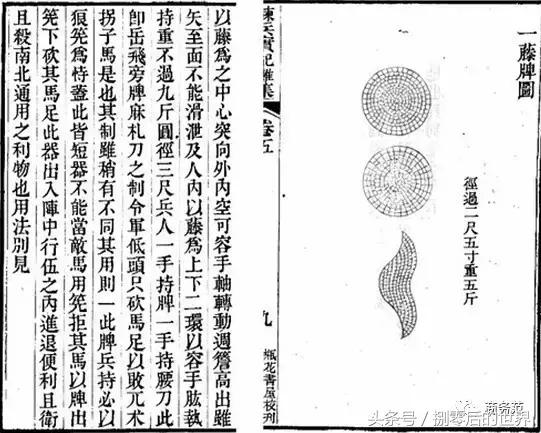 一藤牌圖
徑過二尺五寸重五斤
練兵實紀雜集
卷五
九
瓶花書屋校刊
以藤爲之中心突向外內空可容手軸轉動週簷高出雖
矢至面不能滑泄及人內以藤爲上下二環以容手肱執
持重不過九斤圓徑三尺兵人一手持牌一手持腰刀此
卽岳飛旁牌麻札刀之制令軍低頭只砍馬足以敗兀术
拐子馬是也其制雖稍有不同其用則一此牌兵持必以
狼筅爲恃蓋此皆短器不能當敵馬用筅拒其馬以牌出
筅下砍其馬足此器出入陣中行伍之內進退便利且衛
且殺南北通用之利物也用法別見
商务范
头条号 / 捌零后的世界